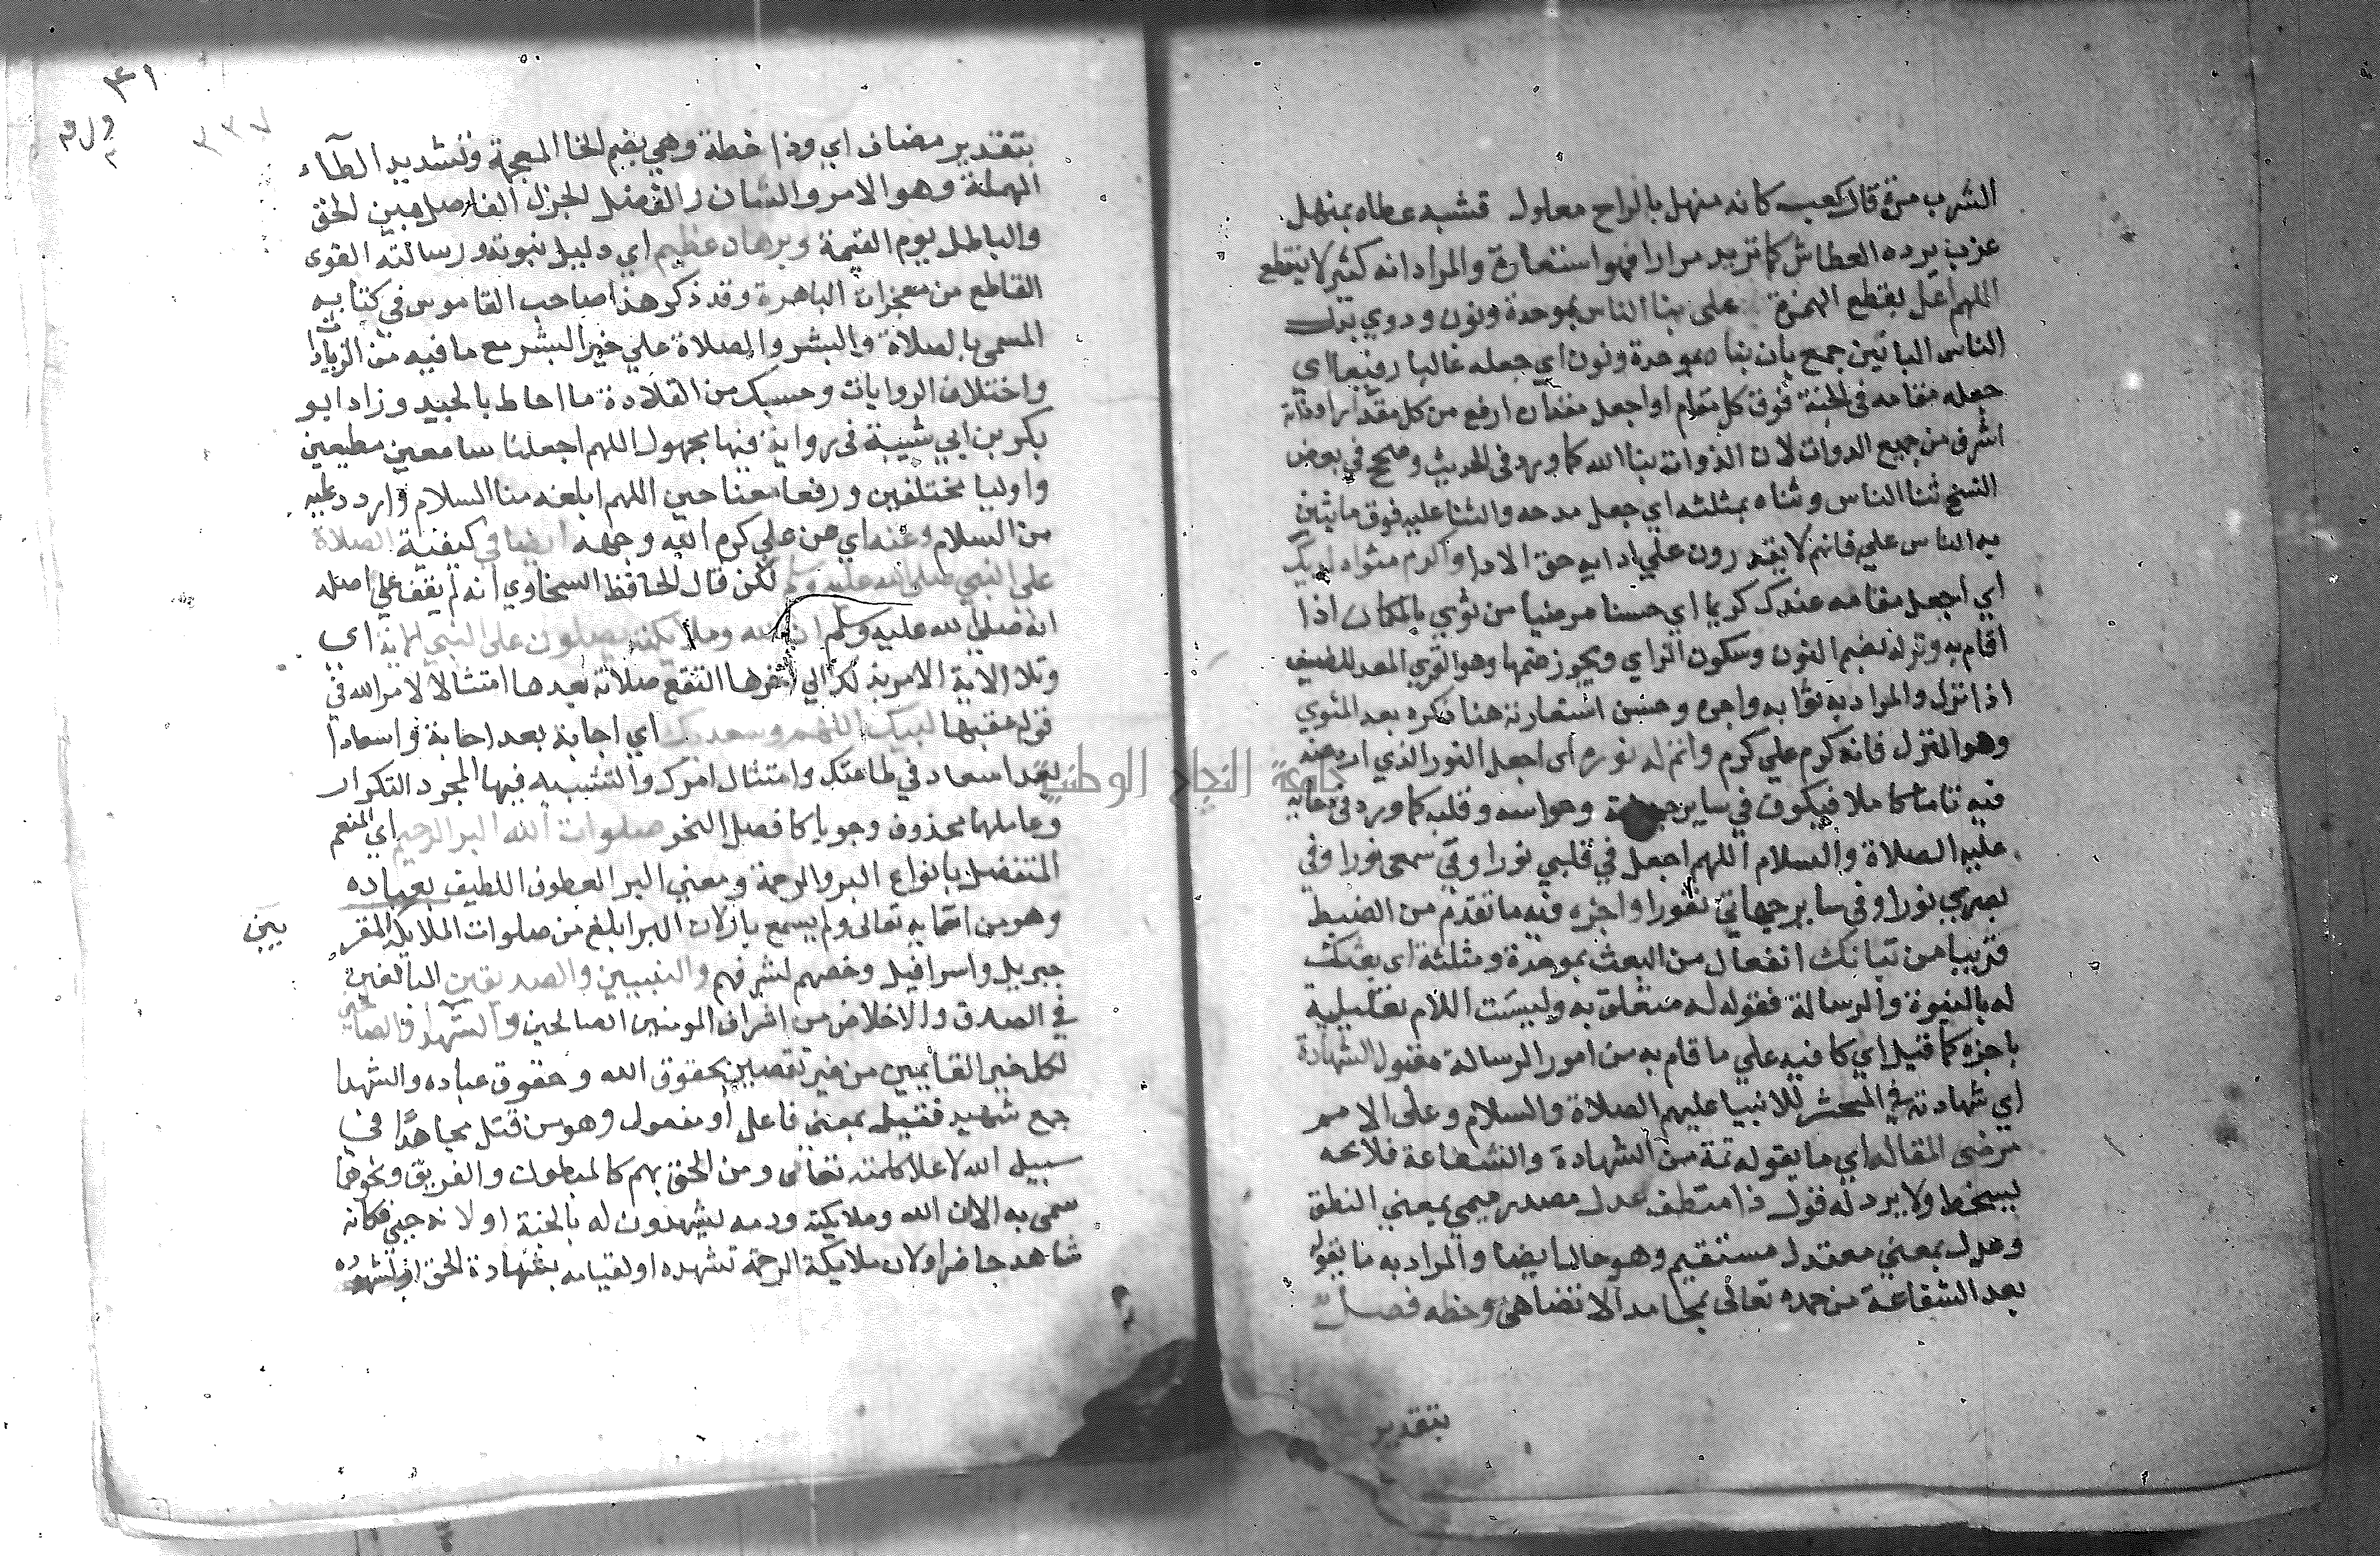 الشرب مرة قال كعب كانه منهل بالراح معلول فشبه عطاه بمنهل
عذب يرده العطاش كما تريد مرارا فهو استعارة والمراد انه كثير لا ينقطع
اللهم اعل بقطع الهمزة على بنا الناس بموحدة ونون وروي بدل
الناس البانين جمع بان بناه بموحدة ونون اي جعله غالبا رفيعا اي
جعله مقامه في الجنة فوق كل مقام او اجعل مقداره ارفع من كل مقدار
اشرف من جميع الذوات لان الذوات بنا الله كما ورد في الحديث وصحح في بعض
النسخ ثنا الناس وثناه بمثلثه اي جعل مدحه والثنا عليه فوق ما يثني
به الناس علي فانهم لا يقدرون علي ادايه حق الادا واكرم مثواه لديك
اي اجعل مقامه عندك كريما اي حسنا مرضيا من ثوي بالمكان اذا
اقام به ونزله بضم النون وسكون الزاي ويجوز ضمها وهو القري المعد للضيف
اذا نزل والمراد به ثوابه واجره وحسن استعارته هنا ذكره بعد المثوي
وهو المنزل فانه كرم علي كرم واتم له نوره اي اجعل النور الذي اودعته
فيه تاما كاملا فيكون في ساير وحواسه وقلبه كما ورد في دعايه
عليه الصلاة والسلام اللهم اجعل في قلبي نورا وفي سمعي نورا وفي
بصري نورا وفي ساير جهاتي نورا واجزه فيه ما تقدم من الضبط
قريبا من ابتعاثك انفعال من البعث بموحدة ومثلثة اي بعثك
له بالنبوة والرسالة فقوله له متعلق به وليست اللام تعليلية
باجزه كما قيل اي كافيه علي ما قام به من امور الرسالة مقبول الشهادة
اي شهادته في المحشر للانبيا عليهم الصلاة والسلام وعلى الامم
مرضي المقاله اي ما يقوله ثمة من الشهادة والشفاعة فلا
يسخط ولا يرد له قول ذا منطق عدل مصدر ميمي بمعني النطق
وعدل بمعني معتدل مستقيم وهو حال ايضا والمراد به ما يقوله
بعد الشفاعة من حمده تعالى بمحامد لا تضاهى وخطه فصل
بتقدير
٣١
بتقدير مضاف اي وذا خطة وهي بضم الخا المعجمة وتشديد الطآء
المهملة وهو الامر والشان والفصل الجزل الفاصل مبين الحق
والباطل يوم القيمة وبرهان عظيم اي دليل نبوته ورسالته القوي
القاطع من معجزات الباهرة وقد ذكر هذا صاحب القاموس في كتابه
المسمى بالصلاة والبشر والصلاة علي خير البشر مع ما فيه من الزيادا
واختلاف الروايات وحسبك من القلادة ما احاط بالجيد وزاد ابو
بكر بن ابي شيبة في رواية فيها مجهول اللهم اجعلنا سامعين مطيعين
واوليا مختلفين ورفقا مصاحبين اللهم ابلغه منا السلام واردد عليه
من السلام وعنه اي عن علي كرم الله وجهه ايضا في كيفية الصلاة
على النبي صلى الله عليه وسلم لكن قال الحافظ السخاوي انه لم يقف علي اصله
انه صلى الله عليه وسلم ان الله وملايكته يصلون على النبي الاية اي
وتلا الاية الامرية لك الي اخرها لتقع صلاته بعدها امتثالا لامر الله في
قوله عقبها لبيك اللهم وسعديك اي اجابة بعد اجابة واسعادا
بعد اسعاد في طاعتك وامتثال امرك والتثنيه فيها لمجرد التكرار
وعاملها محذوف وجوبا كما فصل النحو صلوات الله البر الرحيم اي المنعم
المتفضل بانواع البر والرحمة ومعني البر العطوف اللطيف بعباده
وهو من اسمايه تعالى ولم يسمع بار لان البر ابلغ من صلوات الملايكة المقر
بين
جبريل واسرافيل وخصهم لشرفهم والنبيين والصديقين البالغين
في الصدق والاخلاص من اشراف المومنين الصالحين والشهدا والصالحين
لكل خير القايمين من غير تقصير بحقوق الله وحقوق عباده والشهدا
جمع شهيد فعيل بمعني فاعل او مفعول وهو من قتل مجاهدًا في
سبيل الله لاعلا كلمته تعالى ومن الحق بهم كالمبطون والغريق ونحوهما
سمى به لان الله وملايكته ورسله ليشهدون له بالجنة او لانه حيي فكانه
شاهد حاضر او لان ملايكة الرحمة تشهده او لقيامه بشهادة الحق او لشهوده
جامعة النجاح الوطنية